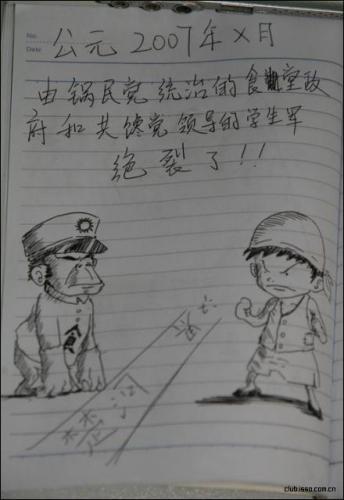 No.
Date
公元 2007年X月
由锅民党统治的食堂政
府和共馋党领导的学生军
绝裂了!!
食
楚河